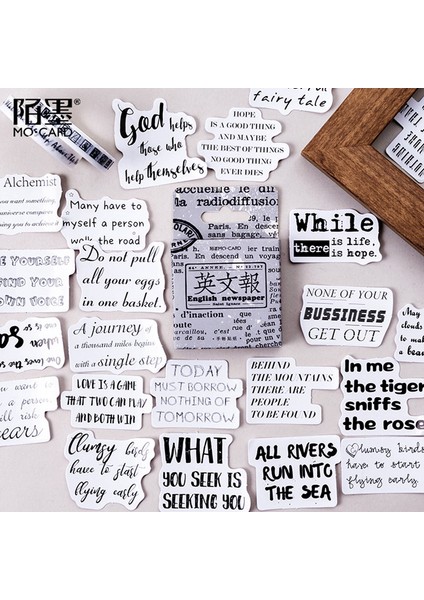 陌墨
MO·CARD
fairy tale
God helps
those who
help themselves
HOPE
IS A GOOD THING
AND MAYBE
THE BEST OF THINGS
NO GOOD THING
EVER DIES
Alchemist
Many have to
myself a person
walk the road
accueille le di
la radiodiffusion
Paris. En desce
sans bagage, v
MO·CARD
英文報
English newspaper
Saint Ignace
d'inaction
While
there is life,
is hope.
Do not pull
all your eggs
in one basket.
YOURSELF
FIND
OWN VOICE
NONE OF YOUR
BUSSINESS
GET OUT
A journey of
a thousand miles begins
with a single step
LOVE IS A GAME
THAT TWO CAN PLAY
AND BOTH WIN
TODAY
MUST BORROW
NOTHING OF
TOMORROW
BEHIND
THE MOUNTAINS
THERE ARE
PEOPLE
TO BE FOUND
In me
the tiger
sniffs
the rose
you want to
a person
will risk
tears
Clumsy birds
have to start
flying early
WHAT
YOU SEEK IS
SEEKING YOU
ALL RIVERS
RUN INTO
THE SEA
Clumsy birds
have to start
flying early